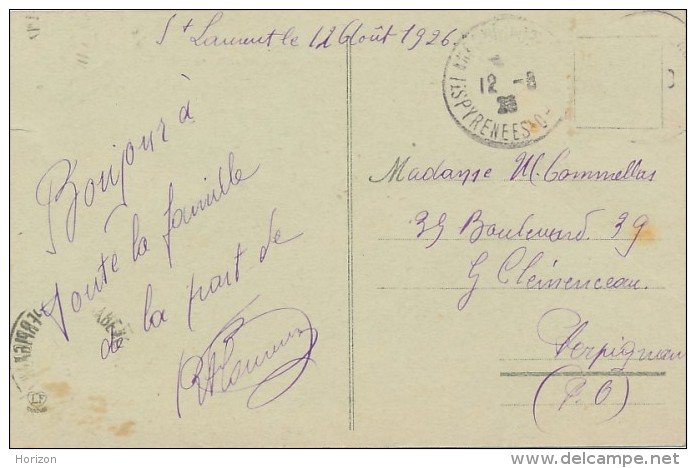 St Laurent le 12 Août 1926
Bonjour à
toute la famille
de la part de
12 -8
26
PYRENEES-O
Madame M. Commellas
39 Boulevard 39
G Clémenceau
Perpignan
(P. O)
Horizon
www.delcampe.net